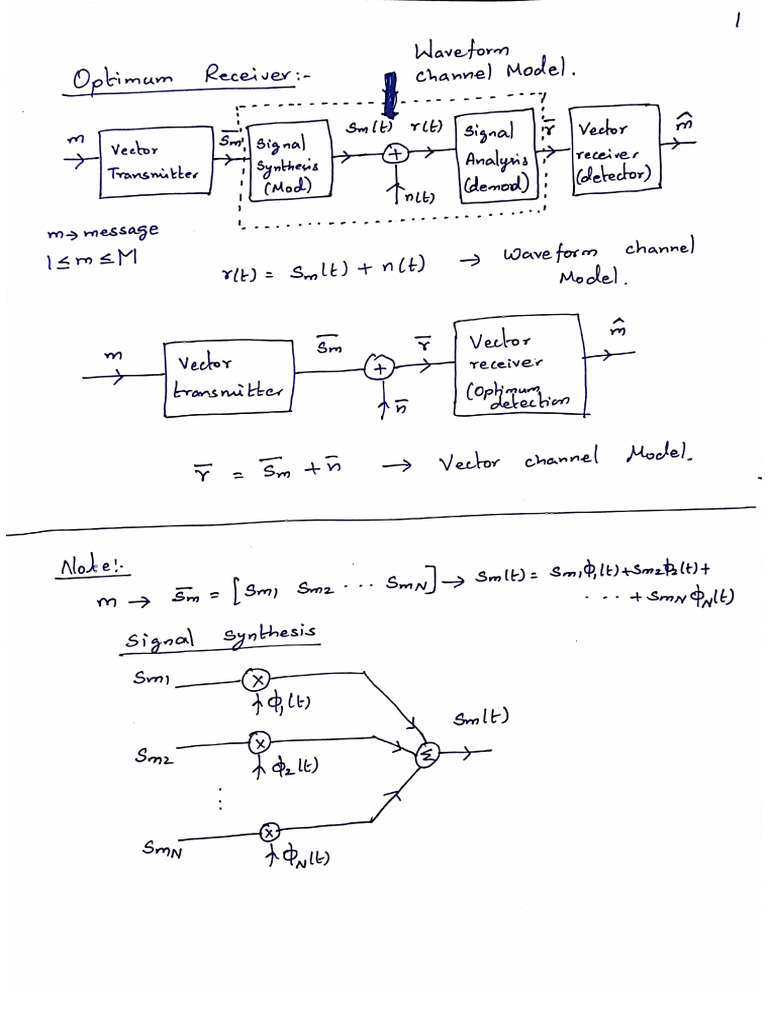 1
Optimum Receiver:-
Waveform
channel Model.
m
Vector
Transmitter
s̅m
Signal
Synthesis
(Mod)
sm(t)
+
n(t)
r(t)
Signal
Analysis
(demod)
r̅
Vector
receiver
(detector)
m̂
m → message
1 ≤ m ≤ M
r(t) = sm(t) + n(t) → Waveform channel
Model.
m
Vector
transmitter
s̅m
+
n̅
r̅
Vector
receiver
(Optimum
detection
m̂
r̅ = s̅m + n̅ → Vector channel Model.
Note:-
m → s̅m = [sm1 sm2 ... smN] → sm(t) = sm1ϕ1(t)+sm2ϕ2(t)+
... + smN ϕN(t)
Signal Synthesis
sm1
×
ϕ1(t)
sm2
×
ϕ2(t)
⋮
smN
×
ϕN(t)
Σ
sm(t)